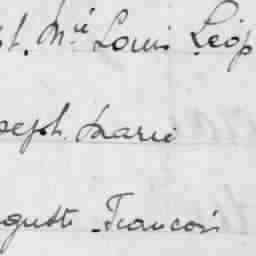 st. Mie Louis Léop
seph Marie
guste Francois